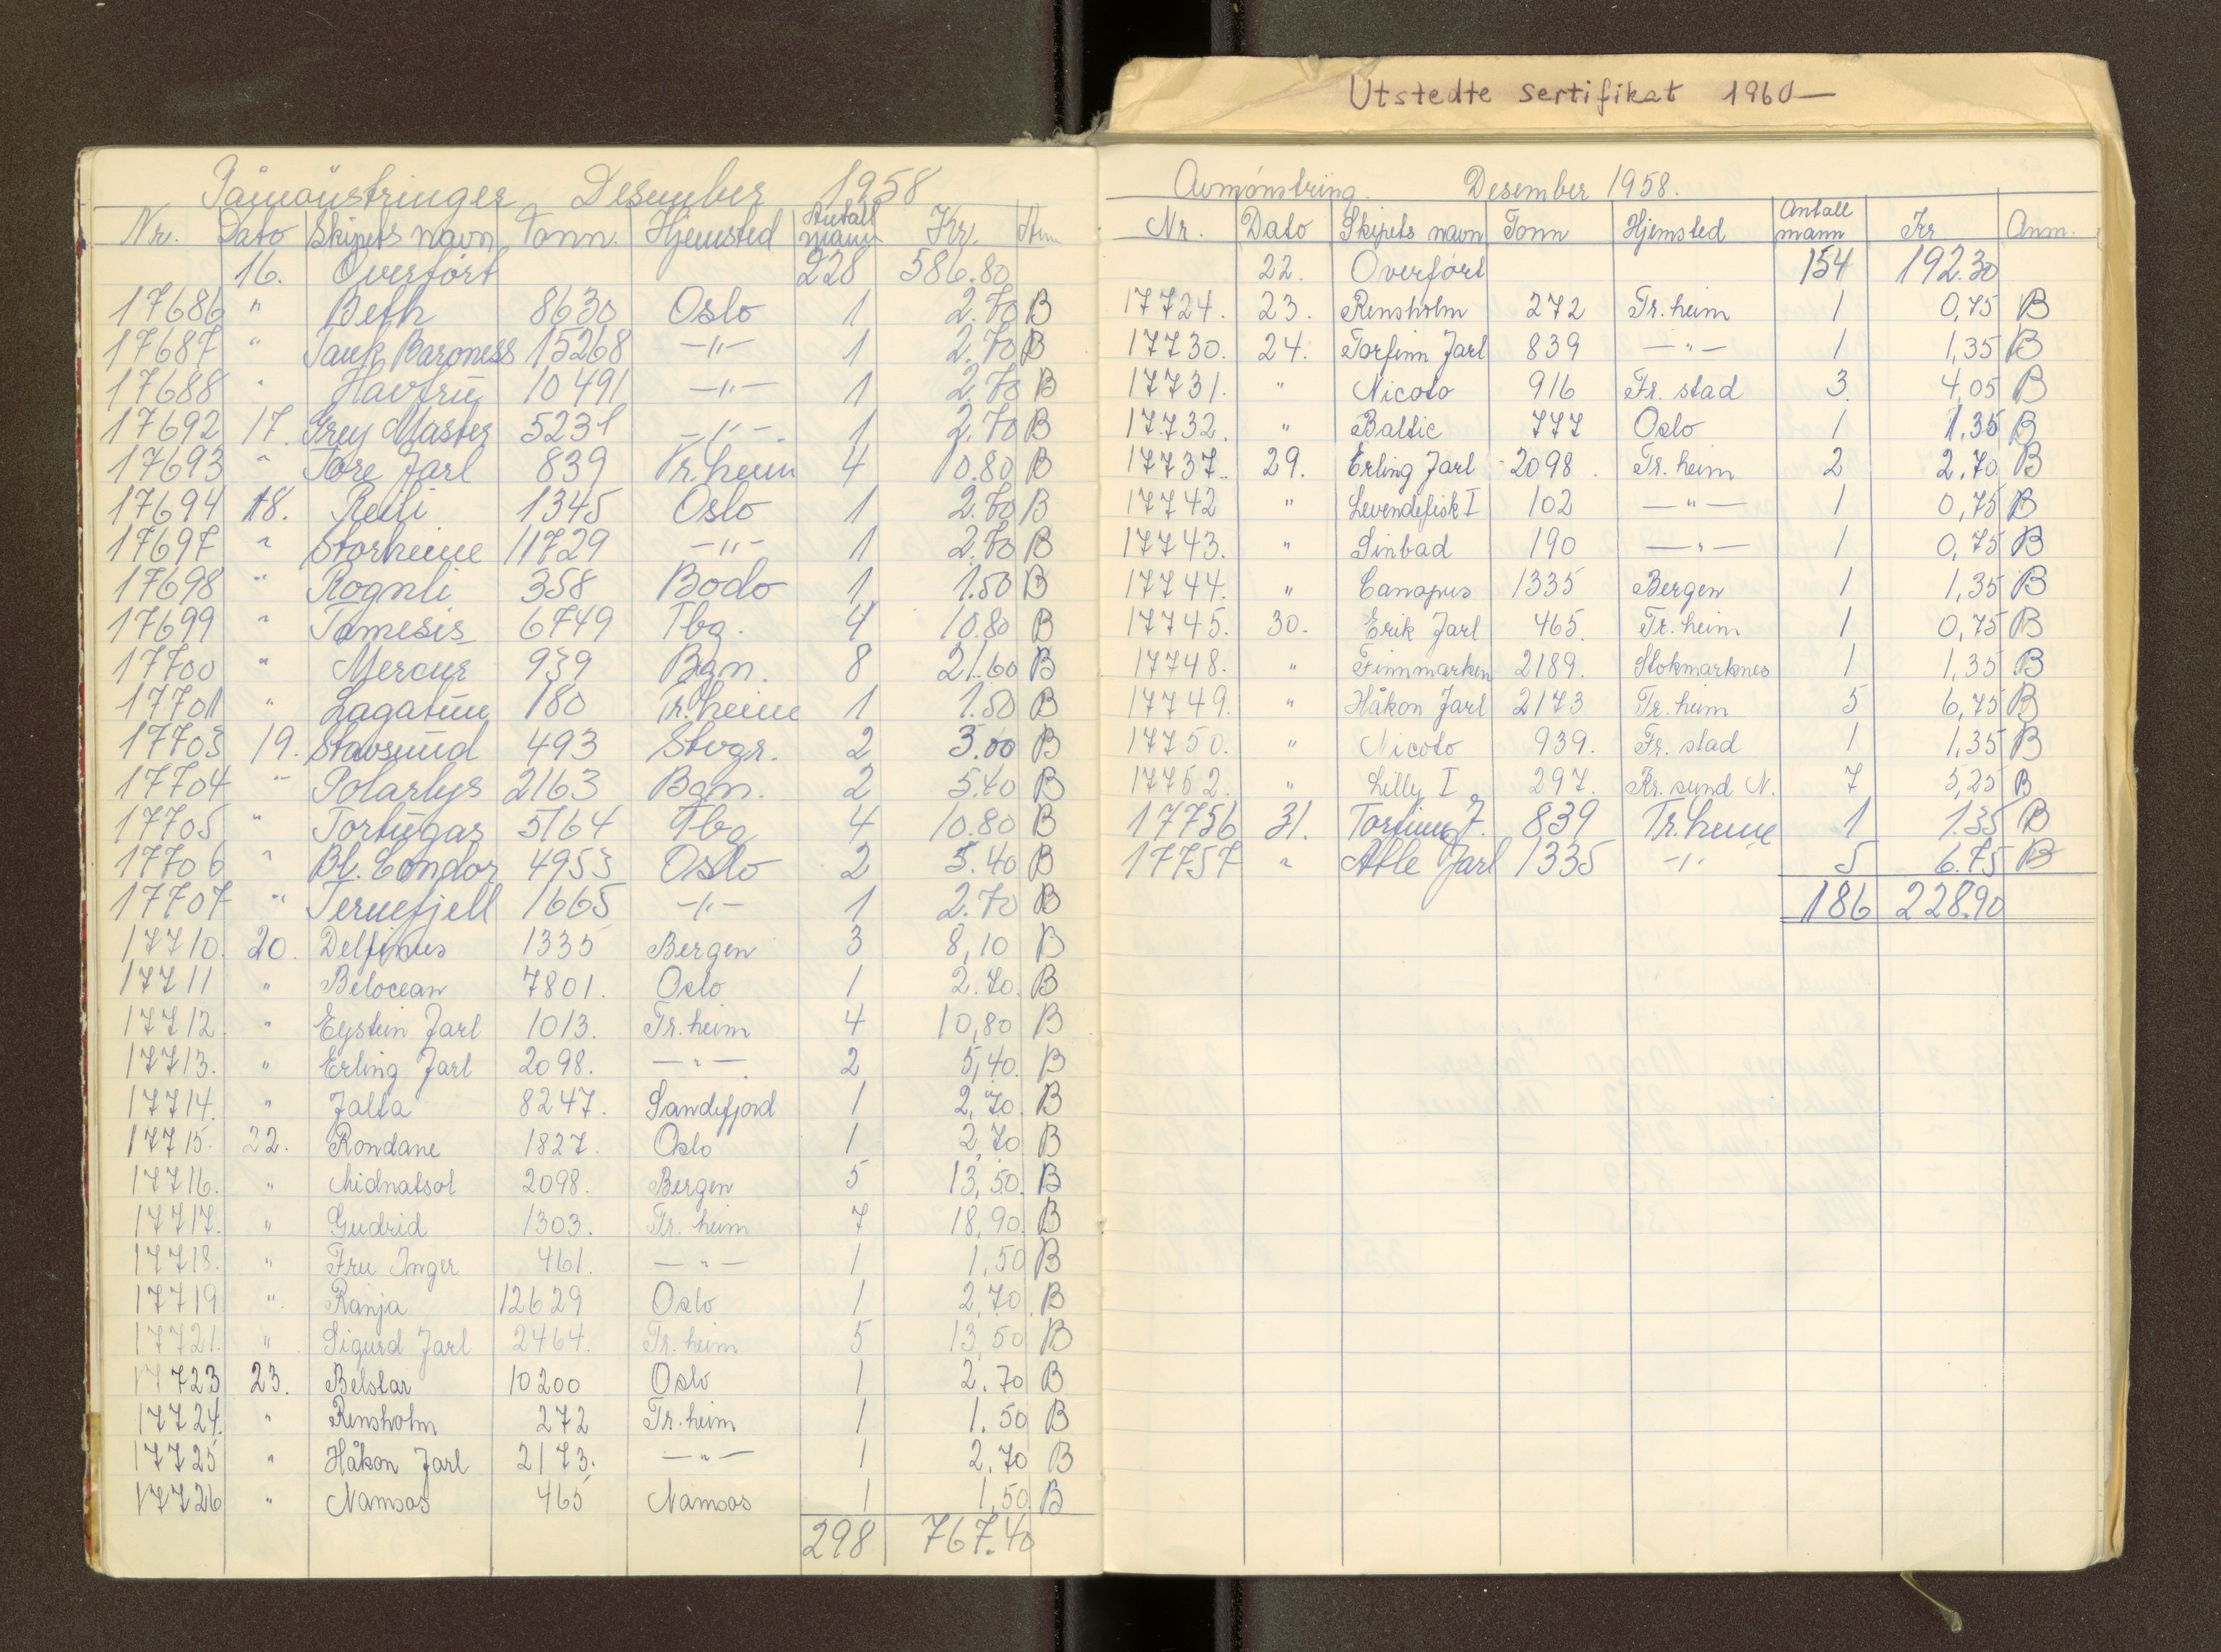 Utstedte sertifikat 1960—
Påmönstringer Desember 1958
Nr. Dato Skipets navn Tonn. Hjemsted Antall mann Kr. Anm
16. Overført 228 586.80
17686 " Beth 8630 Oslo 1 2.70 B
17687 " Tank Baroness 15268 —"— 1 2.70 B
17688 " Havfru 10491 —"— 1 2.70 B
17692 17. Grey Master 5231 —"— 1 2.70 B
17693 " Tore Jarl 839 Tr.heim 4 10.80 B
17694 18. Reili 1345 Oslo 1 2.70 B
17697 " Storheim 11729 —"— 1 2.70 B
17698 " Rognli 358 Bodo 1 1.50 B
17699 " Tamesis 6749 Tbg. 4 10.80 B
17700 " Mercur 939 Bgn. 8 21.60 B
17701 " Lagatun 180 Tr.heim 1 1.50 B
17703 19. Stavsund 493 Stvgr. 2 3.00 B
17704 " Polarlys 2163 Bgn. 2 5.40 B
17705 " Tortugas 5164 Tbg 4 10.80 B
17706 " Bl. Condor 4953 Oslo 2 5.40 B
17707 " Ternefjell 1665 —"— 1 2.70 B
17710. 20. Delfinus 1335 Bergen 3 8,10 B
17711 " Belocean 7801. Oslo 1 2.70. B
17712. " Eystein Jarl 1013. Tr.heim 4 10,80 B
17713. " Erling Jarl 2098. —"— 2 5,40. B
17714. " Jalta 8247. Sandefjord 1 2,70. B
17715. 22. Rondane 1827. Oslo 1 2,70 B
17716. " Midnatsol 2098. Bergen 5 13,50. B
17717. " Gudrid 1303. Tr. heim 7 18,90. B
17718. " Fru Inger 461. —"— 1 1,50 B
17719 " Ranja 12629 Oslo 1 2,70. B
17721. " Sigurd Jarl 2464. Tr. heim 5 13,50 B
17723 23. Belstar 10200 Oslo 1 2.70 B
17724. " Rensholm 272 Tr.heim 1 1.50 B
17725 " Håkon Jarl 2173. —"— 1 2.70 B
17726 " Namsos 465 Namsos 1 1,50 B
298 767.40
Avmönstring. Desember 1958.
Nr. Dato Skipets navn Tonn Hjemsted Antall mann Kr Anm.
22. Overført 154 192.30
17724. 23. Rensholm 272 Tr. heim 1 0,75 B
17730. 24. Torfinn Jarl 839 —"— 1 1,35 B
17731. " Nicoto 916 Fr. stad 3. 4,05 B
17732. " Baltic 777 Oslo 1 1.35 B
17737. 29. Erling Jarl 2098. Tr. heim 2 2,70. B
17742 " Levendefisk I 102 —"— 1 0,75 B
17743. " Sinbad 190 —"— 1 0,75 B
17744. " Canopus 1335 Bergen 1 1,35 B
17745. 30. Erik Jarl 465. Tr. heim 1 0,75 B
17748. " Finnmarken 2189. Stokmarknes 1 1,35 B
17749. " Håkon Jarl 2173 Tr. heim 5 6,75 B
17750. " Nicoto 939. Fr. stad 1 1,35 B
17752. " Lilly I 297. Kr. sund N. 7 5,25 B
17756 31. Torfinn J. 839 Tr. heim 1 1.35 B
17757 " Atle Jarl 1335 —"— 5 6.75 B
186 228.90